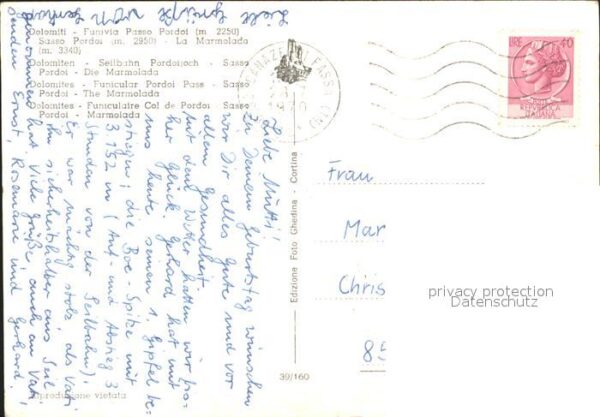 Liebe Grüße von Gerhard
Dolomiti - Funivia Passo Pordoi (m 2250)
Sasso Pordoi (m. 2950) - La Marmolada
(m. 3340)
Dolomiten - Seilbahn Pordoijoch - Sasso
Pordoi - Die Marmolada
Dolomites - Funicular Pordoi Pass - Sasso
Pordoi - The Marmolada
Dolomites - Funiculaire Col de Pordoi - Sasso
Pordoi - Marmolada
Liebe Mutti!
Zu Deinem Geburtstag wünschen
wir Dir alles Gute und vor
allem Gesundheit.
Mit dem Wetter hatten wir bis-
her Glück. Gerhard hat mit
uns heute seinen 1. Gipfel be-
stiegen: die Boe-Spitze mit
3.152 m (Auf- und Abstieg 3
Stunden von der Seilbahn).
Er war mächtig stolz als Vati
ihn sicherheitshalber ans Seil
genommen hat. Viele Grüße auch an Vati
senden Ernst, Rosemarie und Gerhard.
Riproduzione vietata
39/160
Edizione Foto Ghedina - Cortina
LIRE 40
REPVBBLICA
ITALIANA
Frau
Mar
Chris
85
privacy protection
Datenschutz